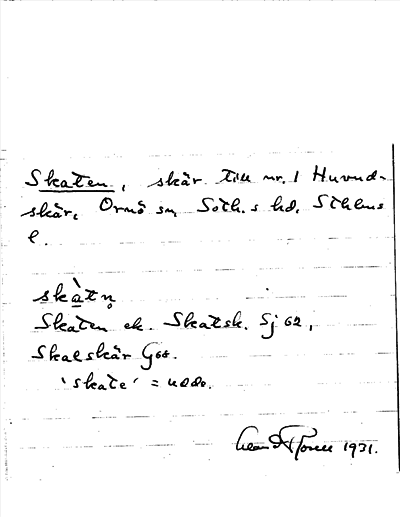 Skaten, skär till nr. 1 Huvud-
skär, Ornö sn, Soth.s hd, Sthlms
l.
skàtn̥
Skaten ek. Skatsk. Sj 62,
Skatskär G66.
'skate' = udde.
1931.